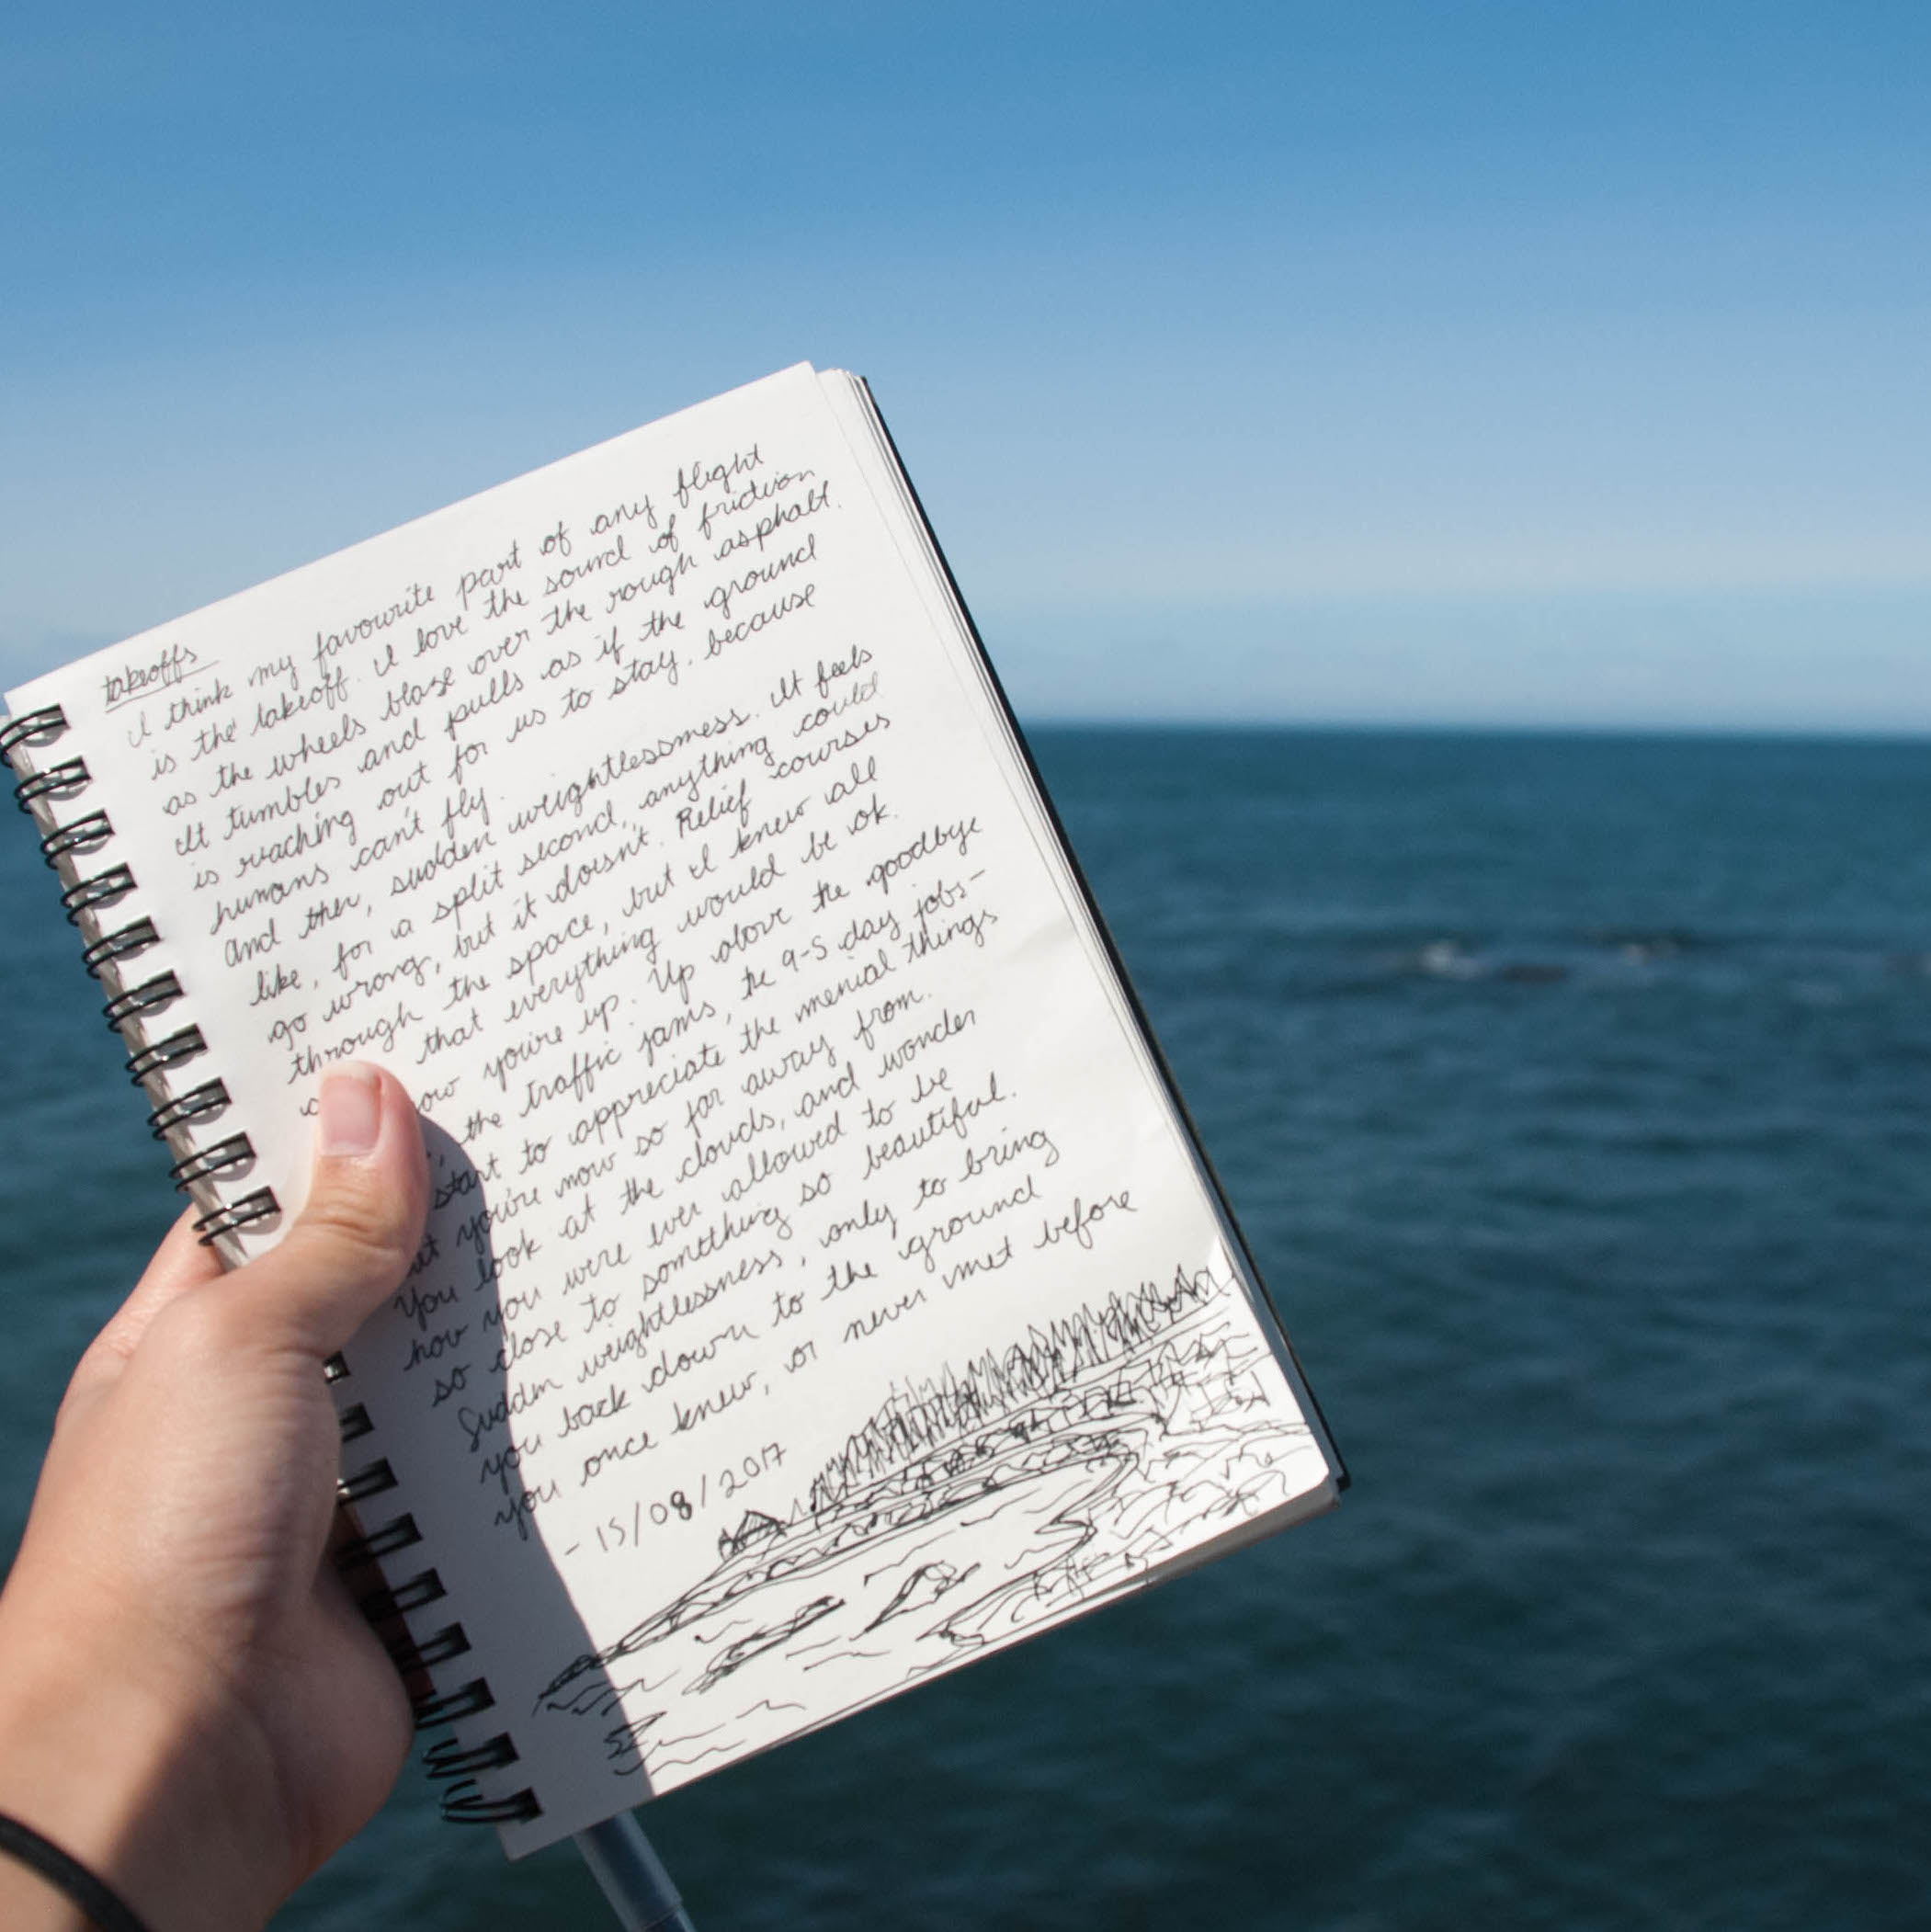 takeoffs
I think my favourite part of any flight
is the takeoff. I love the sound of friction
as the wheels blaze over the rough asphalt.
It tumbles and pulls as if the ground
is reaching out for us to stay, because
humans can't fly.
And then, sudden weightlessness. It feels
like, for a split second, anything could
go wrong, but it doesn't. Relief courses
through the space, but I knew all
that everything would be ok.
you're up. Up above the goodbye
the traffic jams, the 9-5 day jobs-
start to appreciate the menial things
you're now so far away from.
You look at the clouds, and wonder
how you were ever allowed to be
so close to something so beautiful.
Sudden weightlessness, only to bring
you back down to the ground
you once knew, or never met before
- 15/08/2017